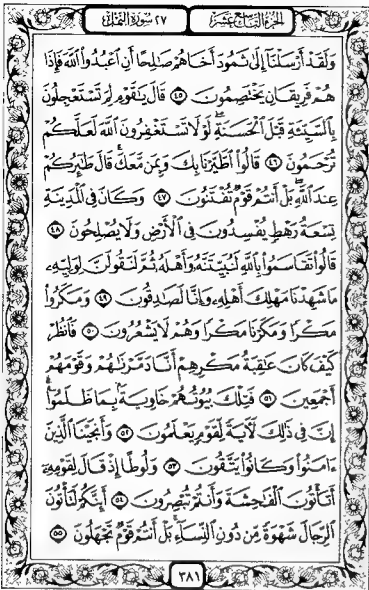 الجزء التاسع عشر ٢٧ سورة النمل
وَلَقَدْ أَرْسَلْنَآ إِلَىٰ ثَمُودَ أَخَاهُمْ صَٰلِحًا أَنِ ٱعْبُدُوا۟ ٱللَّهَ فَإِذَا
هُمْ فَرِيقَانِ يَخْتَصِمُونَ ٤٥ قَالَ يَٰقَوْمِ لِمَ تَسْتَعْجِلُونَ
بِٱلسَّيِّئَةِ قَبْلَ ٱلْحَسَنَةِ ۖ لَوْلَا تَسْتَغْفِرُونَ ٱللَّهَ لَعَلَّكُمْ
تُرْحَمُونَ ٤٦ قَالُوا۟ ٱطَّيَّرْنَا بِكَ وَبِمَن مَّعَكَ ۚ قَالَ طَٰٓئِرُكُمْ
عِندَ ٱللَّهِ ۖ بَلْ أَنتُمْ قَوْمٌ تُفْتَنُونَ ٤٧ وَكَانَ فِى ٱلْمَدِينَةِ
تِسْعَةُ رَهْطٍ يُفْسِدُونَ فِى ٱلْأَرْضِ وَلَا يُصْلِحُونَ ٤٨
قَالُوا۟ تَقَاسَمُوا۟ بِٱللَّهِ لَنُبَيِّتَنَّهُۥ وَأَهْلَهُۥ ثُمَّ لَنَقُولَنَّ لِوَلِيِّهِۦ
مَا شَهِدْنَا مَهْلِكَ أَهْلِهِۦ وَإِنَّا لَصَٰدِقُونَ ٤٩ وَمَكَرُوا۟
مَكْرًا وَمَكَرْنَا مَكْرًا وَهُمْ لَا يَشْعُرُونَ ٥٠ فَٱنظُرْ
كَيْفَ كَانَ عَٰقِبَةُ مَكْرِهِمْ أَنَّا دَمَّرْنَٰهُمْ وَقَوْمَهُمْ
أَجْمَعِينَ ٥١ فَتِلْكَ بُيُوتُهُمْ خَاوِيَةًۢ بِمَا ظَلَمُوٓا۟ ۗ
إِنَّ فِى ذَٰلِكَ لَءَايَةً لِّقَوْمٍ يَعْلَمُونَ ٥٢ وَأَنجَيْنَا ٱلَّذِينَ
ءَامَنُوا۟ وَكَانُوا۟ يَتَّقُونَ ٥٣ وَلُوطًا إِذْ قَالَ لِقَوْمِهِۦٓ
أَتَأْتُونَ ٱلْفَٰحِشَةَ وَأَنتُمْ تُبْصِرُونَ ٥٤ أَئِنَّكُمْ لَتَأْتُونَ
ٱلرِّجَالَ شَهْوَةً مِّن دُونِ ٱلنِّسَآءِ ۚ بَلْ أَنتُمْ قَوْمٌ تَجْهَلُونَ ٥٥
٣٨١